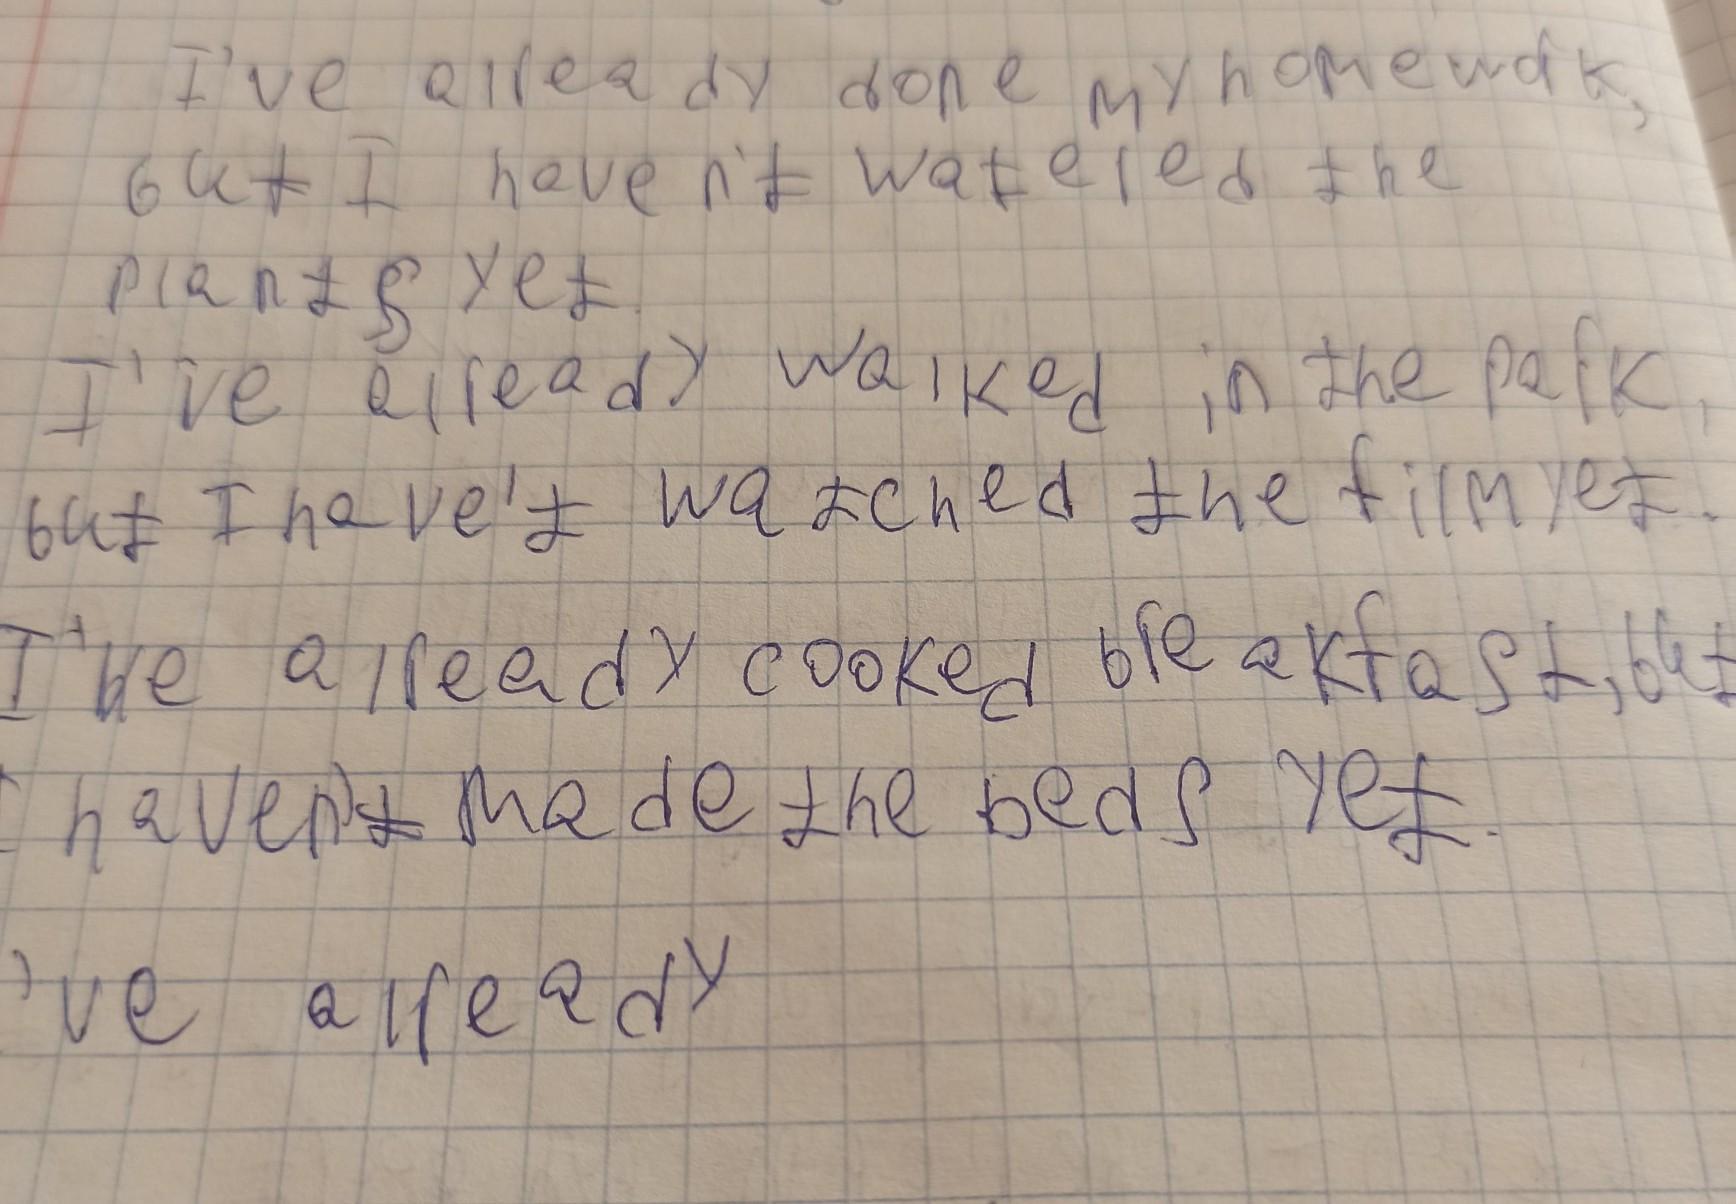 I've already done my homewok,
but I haven't watered the
plants yet.
I've already walked in the park,
but I have't watched the film yet.
I've already cooked breakfast, but
I haven't made the beds yet.
've already